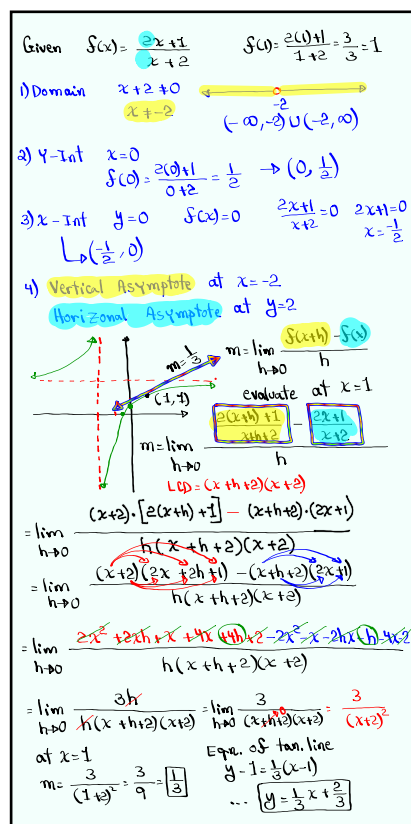 Given f(x) = 2x+1 / x+2 f(1) = 2(1)+1 / 1+2 = 3/3 = 1
1) Domain x+2≠0
x≠-2 -2
(-∞,-2)∪(-2,∞)
2) Y-Int x=0
f(0) = 2(0)+1 / 0+2 = 1/2 → (0, 1/2)
3) x-Int y=0 f(x)=0 2x+1 / x+2 = 0 2x+1=0
x = -1/2
↳ (-1/2, 0)
4) Vertical Asymptote at x=-2
Horizonal Asymptote at y=2
m=1/3 m = lim h→0 f(x+h) - f(x) / h
(1,1) evaluate at x=1
m = lim h→0 2(x+h)+1 / x+h+2 - 2x+1 / x+2 / h
LCD=(x+h+2)(x+2)
= lim h→0 (x+2)·[2(x+h)+1] - (x+h+2)·(2x+1) / h(x+h+2)(x+2)
= lim h→0 (x+2)(2x+2h+1) - (x+h+2)(2x+1) / h(x+h+2)(x+2)
= lim h→0 2x²+2xh+x+4x+4h+2-2x²-x-2hx-h-4x-2 / h(x+h+2)(x+2)
= lim h→0 3h / h(x+h+2)(x+2) = lim h→0 3 / (x+h+2)(x+2) = 3 / (x+2)²
at x=1 Eqn. of tan. line
m = 3 / (1+2)² = 3/9 = 1/3 y-1 = 1/3(x-1)
... y = 1/3 x + 2/3